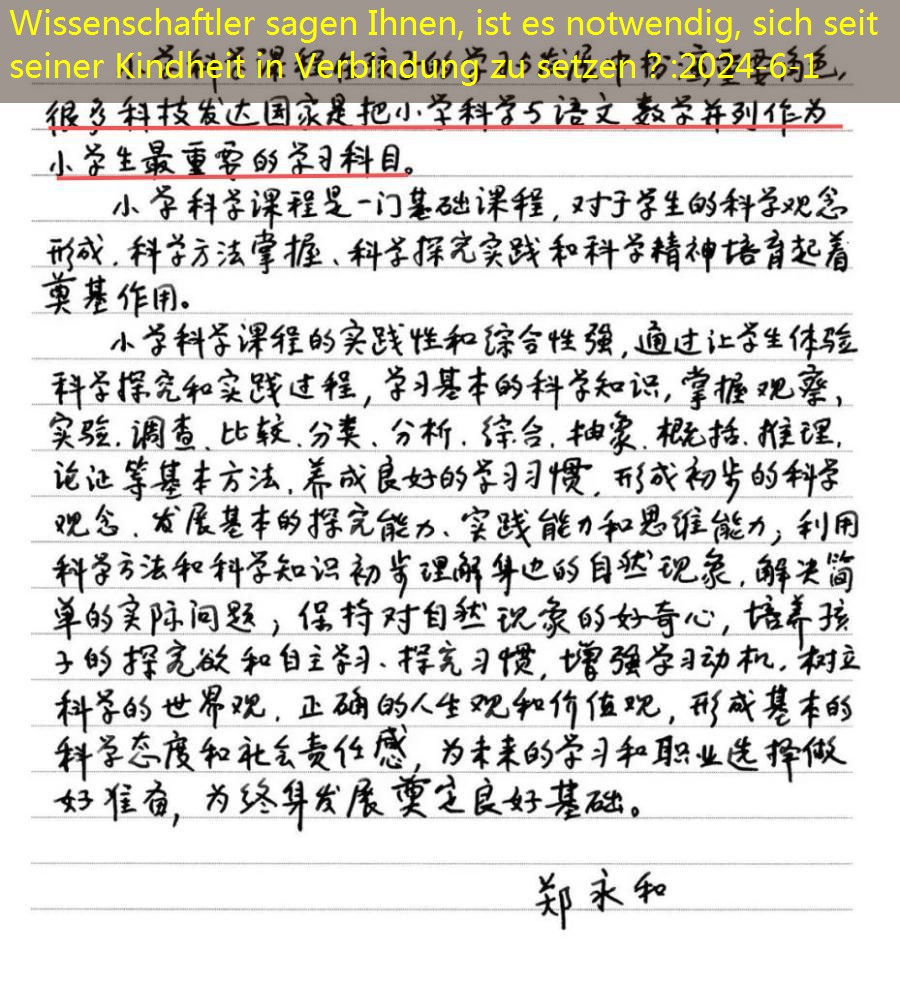 Wissenschaftler sagen Ihnen, ist es notwendig, sich seit
seiner Kindheit in Verbindung zu setzen？:2024-6-1
小学科学课程在孩子的学习与发展中扮演重要角色,
很多科技发达国家是把小学科学与语文数学并列作为
小学生最重要的学习科目。
小学科学课程是一门基础课程,对于学生的科学观念
形成、科学方法掌握、科学探究实践和科学精神培育起着
奠基作用。
小学科学课程的实践性和综合性强,通过让学生体验
科学探究和实践过程,学习基本的科学知识,掌握观察,
实验、调查、比较、分类、分析、综合、抽象、概括、推理、
论证等基本方法,养成良好的学习习惯,形成初步的科学
观念、发展基本的探究能力、实践能力和思维能力;利用
科学方法和科学知识初步理解身边的自然现象,解决简
单的实际问题;保持对自然现象的好奇心,培养孩
子的探究欲和自主学习、探究习惯,增强学习动机,树立
科学的世界观、正确的人生观和价值观,形成基本的
科学态度和社会责任感,为未来的学习和职业选择做
好准备,为终身发展奠定良好基础。
郑永和